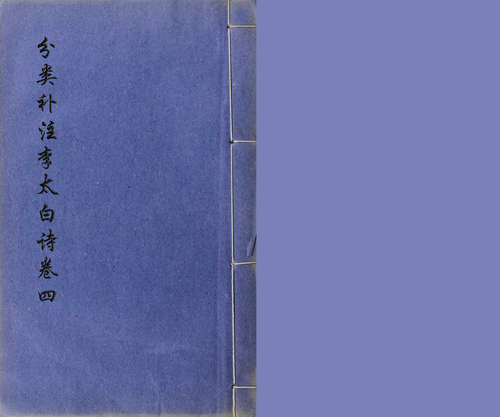 分类补注李太白诗卷四